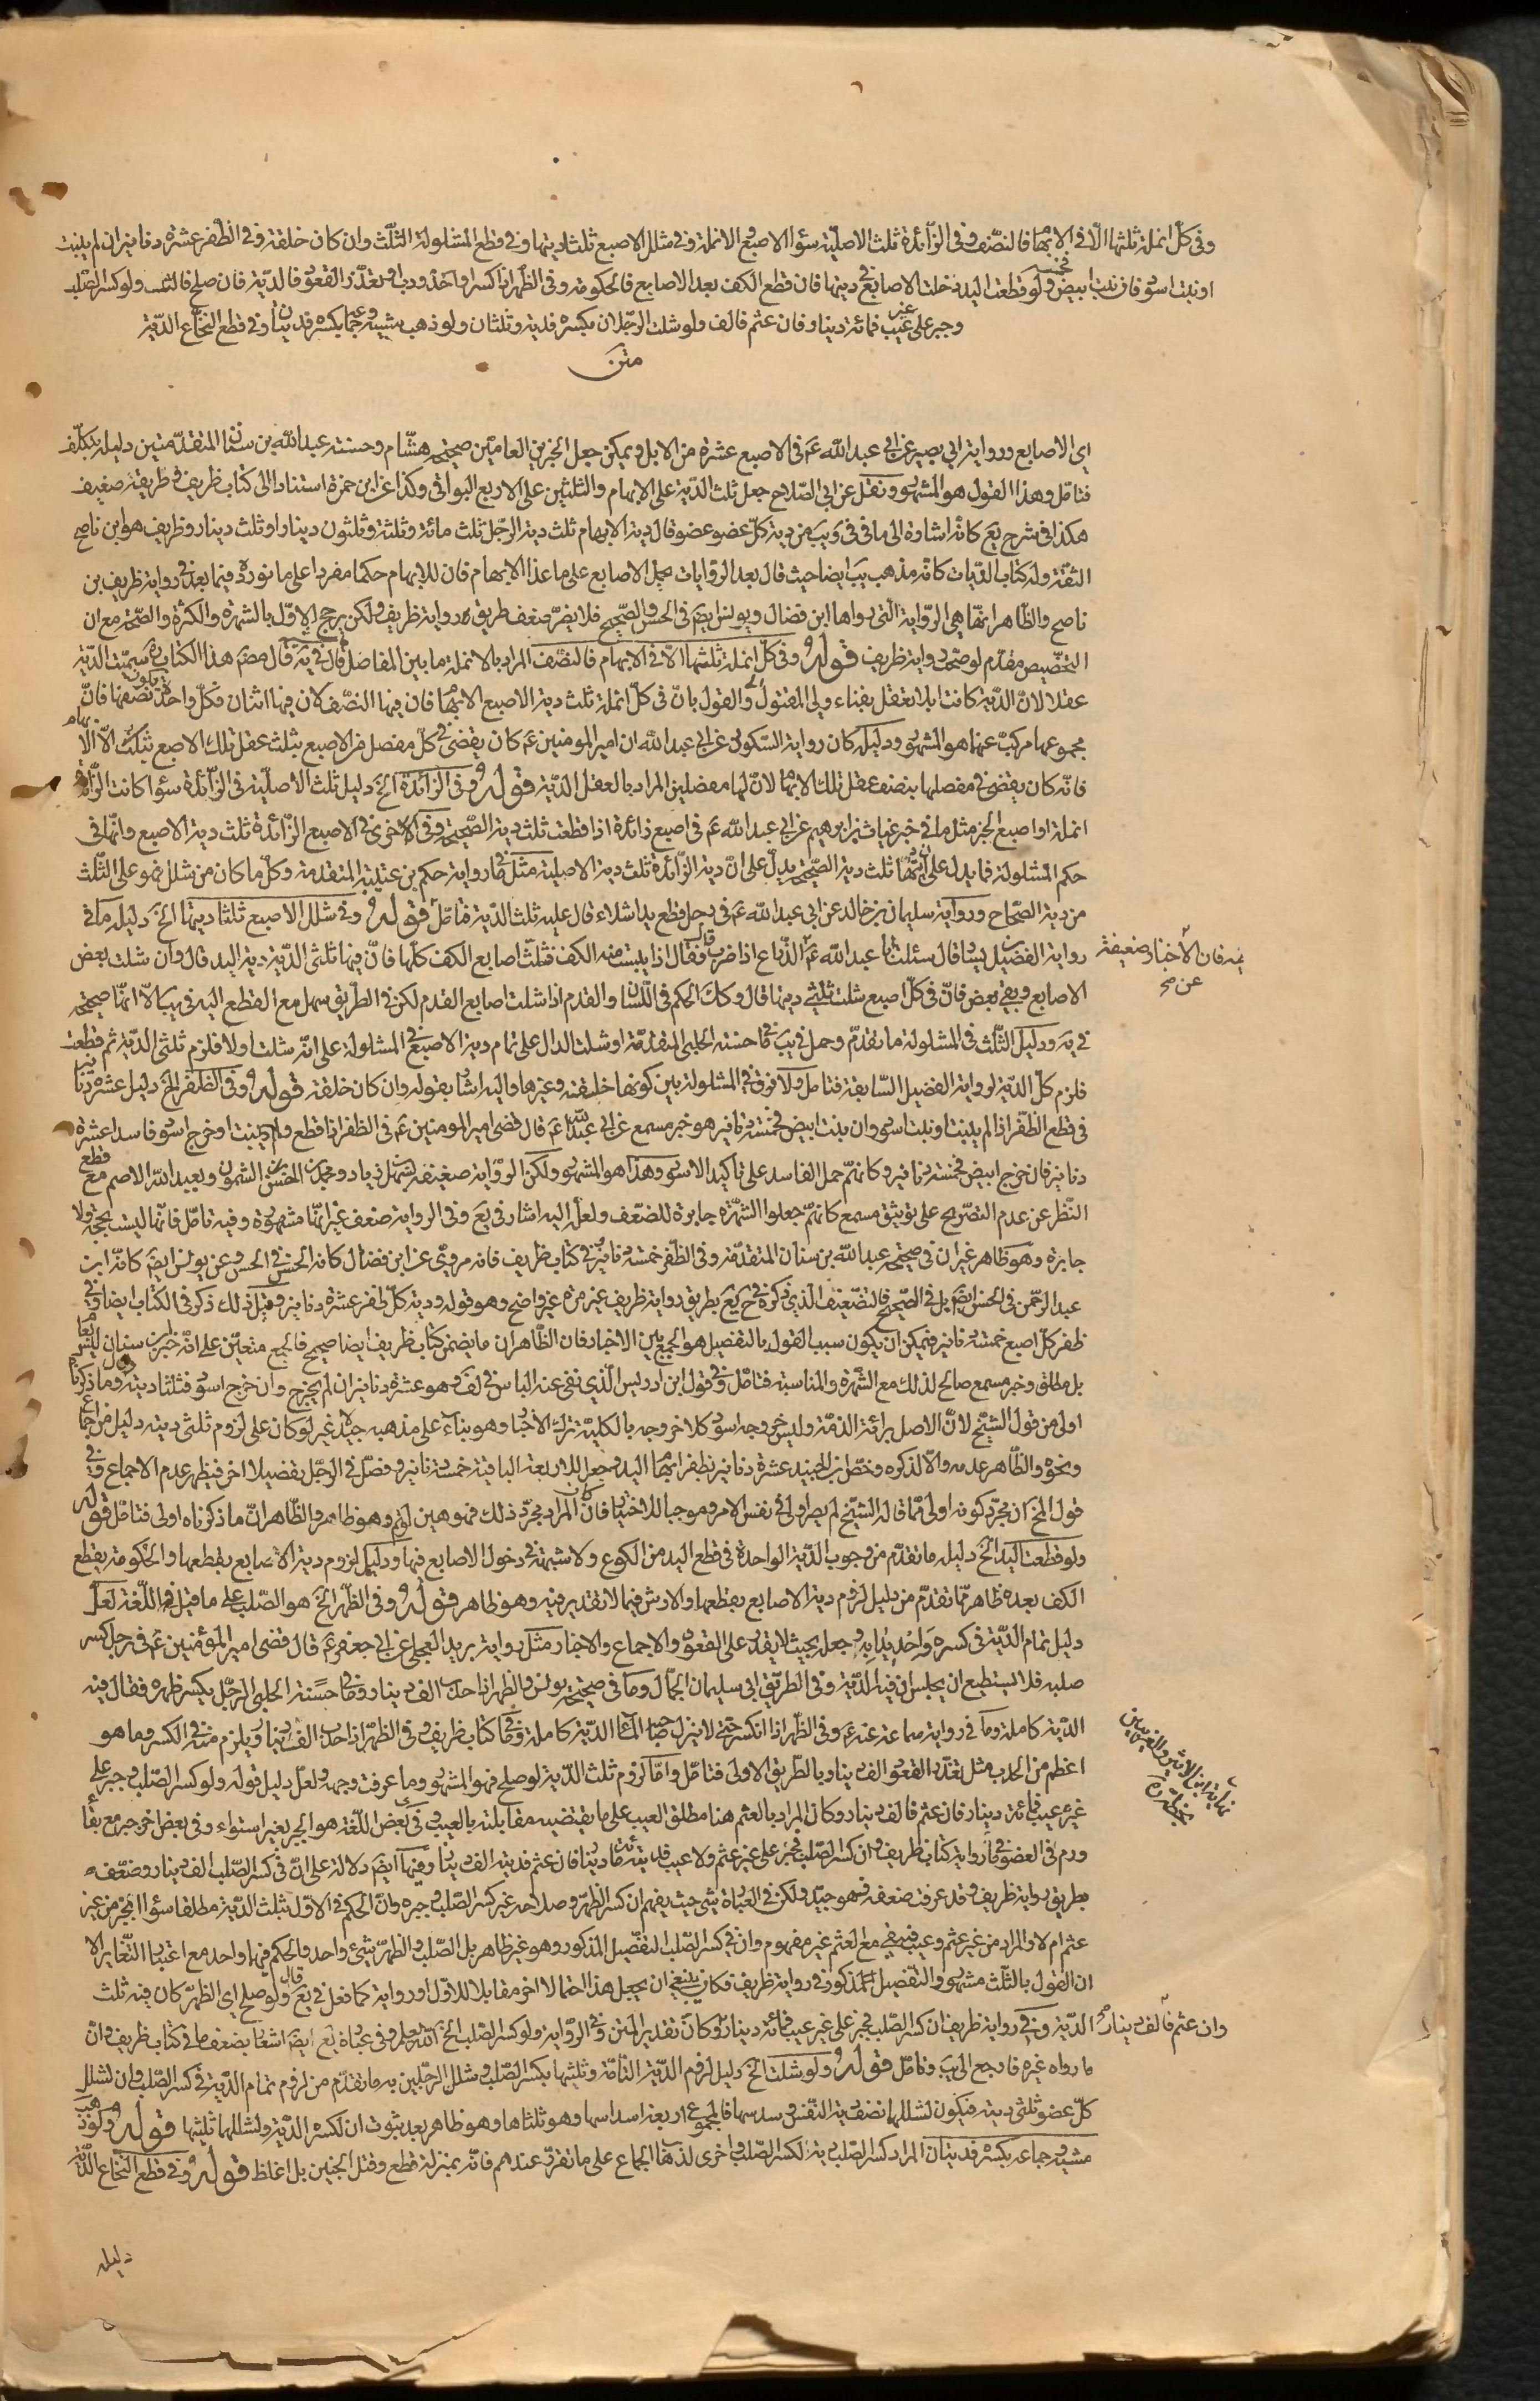 وفى كلّ انملة ثلثها الّا فى الابهام فالنصّف وفى الزّائدة ثلث الاصليّة سواء الاصبع والانملة وفى شلل الاصبع ثلثا ديتها وفى قطع المشلولة الثّلث وان كان خلقة وفى الظّفر عشرة دنانير ان لم ينبت
او نبت اسود فان نبت ابيض فخمسة ولو قطعت اليد دخلت الاصابع فى ديتها فان قطع الكفّ بعد الاصابع فالحكومة وفى الظّهر اذا كسر او احدودب او تعذّر القعود فالدّية فان صلح فالثلث ولو كسر الصّلب
وجبر على غير عيب فمائة دينار فان عثم فالف ولو شلت الرّجلان بكسره فدية وثلثان ولو ذهب مشيه وجماعه بكسره فديتان وفى قطع النّخاع الدّية
متن
اى الاصابع ورواية ابى بصير عن ابى عبد الله ع فى الاصبع عشرة من الابل ويمكن جعل الخبرين العامّين صحيحة هشّام وحسنة عبد الله بن سنان المتقدّمتين دليله بتكلّف
فتامّل وهذا القول هو المشهور ونقل عن ابى الصّلاح جعل ثلث الدّية على الابهام والثلثين على الاربع البواقى وكذا عن ابن حمزة استنادا الى كتاب ظريف وطريقه ضعيف
هكذا فى شرح يع كانّه اشارة الى ما فى فى ويب من دية كلّ عضو عضو قال دية الابهام ثلث دية الرّجل ثلث مائة وثلثة وثلثون دينارا وثلث دينار وظريف هو ابن ناصح
الثقة وله كتاب الدّيات كانّه مذهب يب ايضا حيث قال بعد الروايات يحمل الاصابع على ما عدا الابهام فان للابهام حكما مفردا على ما نورده فيما بعد فى رواية ظريف بن
ناصح والظّاهر انّها هى الرّواية الّتى رواها ابن فضال ويونس ايضم فى الحسن والصّحيح فلا يضرّ ضعف طريق رواية ظريف ولكن يرجح الاوّل بالشهرة والكثرة والصّحة مع ان
التخصيص مقدّم لو صحّت رواية ظريف قوله وفى كلّ انملة ثلثها الّا فى الابهام فالنصّف المراد بالانملة ما بين المفاصل قال فى يه قال مصنّف هذا الكتاب ره سميّت الدّية
عقلا لانّ الدّية كانت ابلا تعقل بفناء ولى المقتول والقول بانّ فى كلّ انملة ثلث دية الاصبع الا الابهام فان فيها النصّف لان فيها اثنان فكلّ واحدة نصفها فانّ
مجموعها مركّب عنها هو المشهور ودليله كان رواية السّكونى عن ابى عبد الله ان امير المومنين ع كان يقضى فى كلّ مفصل من الاصبع بثلث عقل تلك الاصبع الّا الابهام
فانّه كان يقضى فى مفصلها بنصف عقل تلك الابهام لانّ لها مفصلين المراد بالعقل الدّية قوله وفى الزّائدة الخ دليل ثلث الاصليّة فى الزّائدة سواء كانت الزّائدة
انملة او اصبع الخبر مثل ما فى خبر غياث بن ابرهيم عن ابى عبد الله ع فى اصبع زائدة اذا قطعت ثلث دية الصّحيحة وفى الاخرى فى الاصبع الزّائدة ثلث دية الاصبع وانّها فى
حكم المشلولة فما يدل على انّ فيها ثلث دية الصّحيحة يدلّ على انّ دية الزّائدة ثلث دية الاصلية مثل ما فى رواية حكم بن عتيبة المتقدمة وكلّ ما كان من شلل فهو على الثّلث
من دية الصّحاح ورواية سليمان بن خالد عن ابى عبد الله ع فى رجل قطع يد اشلاء قال عليه ثلث الدّية فتامّل قوله وفى شلل الاصبع ثلثا ديتها الخ دليله ما فى
رواية الفضيل بن يسار قال سئلت ابا عبد الله ع عن الذّراع اذا ضرب فقال اذا يبست منه الكف فشلّت اصابع الكف كلّها فانّ فيها ثلثى الدّية دية اليد قال وان شلت بعض
الاصابع وبقى بعض فانّ فى كلّ اصبع شلت ثلثى ديتها قال وكك الحكم فى السّاق والقدم اذا شلت اصابع القدم لكن فى الطّريق سهل مع القطع اليه فى يب الّا انّها صحيحة
فى يه ودليل الثّلث فى المشلولة ما تقدّم وحمل فى يب ما فى حسنة الحلبى المتقدّمة او شلت الدال على تمام دية الاصبع فى المشلولة على انّه شلت اولا فلزم ثلثى الدّية ثم قطعت
فلزم كلّ الدّية لرواية الفضيل السّابقة فتامل ولا فرق فى المشلولة بين كونها خليقة وغيرها واليه اشار بقوله وان كان خلقة قوله وفى الظفر الخ دليل عشرة دنانير
فى قطع الظّفر اذا لم ينبت او نبت اسود وان نبت ابيض فخمسة دنانير هو خبر مسمع عن ابى عبد الله ع قال قضى امير المومنين ع فى الظفر اذا قطع ولم ينبت او خرج اسود فاسدا عشرة
دنانير فان خرج ابيض فخمسة دنانير وكانّهم حمل الفاسد على تأكيد الاسود وهذا هو المشهور ولكن الرّواية ضعيفة بسهل بن زياد ومحمد بن الحسن بن الشمون وبعبد الله الاصم مع قطع
النّظر عن عدم التصريح على توثيق مسمع كانهم جعلوا الشهرة جابرة للضعف ولعلّ اليه اشار فى يع وفى الرواية ضعف غير انّها مشهورة وفيه تامّل فانّها ليست بحجّة ولا
جابرة وهو ظاهر غير ان فى صحيحة عبد الله بن سنان المتقدّمة وفى الظّفر خمسة دنانير وفى كتاب ظريف فانه مروىّ عن ابن فضال كانه الحسن فى الحسن وعن يونس ايضم كانّه ابن
عبد الرّحمن فى الحسن ايضم بل فى الصّحيح فالتضعيف الّذى ذكره فى ح يع بطريق رواية ظريف غير مرّة غير واضح وهو قوله ودية كلّ ظفر عشرة دنانير وقبل ذلك ذكر فى الكتاب ايضا وفى
ظفر كلّ اصبع خمسة دنانير فيمكن ان يكون سبب القول بالتفصيل هو الجمع بين الاخبار فان الظّاهر ان ما يضمن كتاب ظريف ايضا صحيح فالجمع متعيّن على انّه خبر ابن سنان ليس بعام
بل مطلق وخبر مسمع صالح لذلك مع الشهرة والمناسبة فتامّل وفى قول ابن ادريس الّذى نفى عنه الباس فى لف وهو عشرة دنانير ان لم يخرج وان خرج اسود فثلثا ديته وما ذكرناه
اولى من قول الشّيخ لانّ الاصل برائة الذمّة وليس خروجه اسود كلا خروجه بالكليّة ترك الاخبار وهو بناء على مذهبه جيّد غير لو كان على لزوم ثلثى ديته دليل من اجماع
ونحوه والظّاهر عدمه والّا لذكره وخصّ ابن الجنيد عشرة دنانير بظفر ابهام اليد وجعل للاربعة الباقية خمسة دنانير وفصل فى الرّجل تفصيلا اخر فيظهر عدم الاجماع وفى
قول الخ ان مجرّد كونه اولى ممّا قاله الشّيخ لم يصر اولى فى نفس الامر وموجبا للاختيار فان كان المراد مجرّد ذلك فهو هين لهم وهو ظاهر والظّاهر انّ ما ذكرناه اولى فتامّل قوله
ولو قطعت اليد الخ دليله ما تقدّم من وجوب الدّية الواحدة فى قطع اليد من الكوع ولا شبهة فى دخول الاصابع فيها ودليل لزوم دية الاصابع بقطعها والحكومة بقطع
الكف بعده ظاهر ممّا تقدّم من دليل لزوم دية الاصابع بقطعها والارش فيما لا تقدير فيه وهو ظاهر قوله وفى الظّهر الخ هو الصّلب على ما قيل فى اللّغة لعلّ
دليل تمام الدّية فى كسره واحديدابه وجعله بحيث لا يقدر على القعود والاجماع والاخبار مثل رواية بريد العجلى عن ابى جعفر ع قال قضى امير المؤمنين ع فى رجل كسر
صلبه فلا يستطيع ان يجلس ان فيه الدّية وفى الطّريق ابى سليمان الجمّال وما فى صحيحة يونس والظهر اذا حدب الف دينار وما فى حسنة الحلبى الرّجل يكسر ظهره فقال فيه
الدّية كاملة وما فى رواية سماعة عنه ع وفى الظّهر اذا انكسر حتّى لا ينزل صاحبه الماء الدّية كاملة وما فى كتاب ظريف وفى الظهّر اذا حدب الف دينار ويلزم منه فى الكسر وما هو
اعظم من الحدب مثل تعذّر القعود الف دينار وبالطّريق الاولى فتامّل وامّا لزوم ثلث الدّية لو صلح فهو المشهور وما عرفت وجهه ولعلّ دليل قوله ولو كسر الصّلب وجبر على
غير عيب فمائة دينار فان عثم فالف دينار وكان المراد بالعثم هنا مطلق العيب على ما يقتضيه مقابلته بالعيب وفى بعض اللّغة هو الجبر بغير استواء وفى بعض اخر جبر مع بقاء
ورم فى العضو ما فى رواية كتاب ظريف وان كسر الصّلب فجبر على غير عثم ولا عيب فديته مائة دينار فان عثم فديته الف دينار وفيها ايضم دلالة على انّ فى كسر الصّلب الف دينار وضعّف
بطريق رواية ظريف وقد عرفت ضعفه فهو جيّد ولكن فى العبارة شى حيث يفهم ان كسر الظهر وصلاحه غير كسر الصّلب وجبره وانّ الحكم فى الاوّل بثلث الدّية مطلقا سواء انجبر من غير
عثم ام لا والمراد من غير عثم وعيب فيبقى مع العثم غير مفهوم وان فى كسر الصّلب التفصيل المذكور وهو غير ظاهر بل الصّلب والظهر شىء واحد والحكم فيها واحد مع اعتبار التّغاير الا
ان القول بالثّلث مشهور والتّفصيل المذكور فى رواية ظريف فكان ينبغى ان يجعل هذا احتمالا اخر مقابلا للاوّل او رواية كما فعل فى يع قال ولو صلح اى الظهر كان فيه ثلث
الدّية وفى رواية ظريف ان كسر الصّلب فجبر على غير عيب فمائة دينار وكان تقدير المتن وفى الرّواية ولو كسر الصّلب الخ الله يعلم وفى عبارة يع ايضم اشعار بضعف ما فى كتاب ظريف وان
ما رواه غيره فارجع الى يب وتامّل قوله ولو شلت الخ دليل لزوم الدّية التّامّة وثلثيها بكسر الصّلب وشلل الرّجلين به ما تقدّم من لزوم تمام الدّية فى كسر الصّلب وان لشلل
كلّ عضو ثلثى ديته فيكون لشللها نصف دية النفس وسدسها فالمجموع اربعة اسداسها وهو ثلثاها وهو ظاهر بعد ثبوت ان لكسره الدّية ولشللها ثلثيها قوله ولو ذهب
مشيه وجماعه بكسره فديتان المراد كسر الصّلب دية لكسر الصّلب واخرى لذهاب الجماع على ما تقرّر عندهم فانّه بمنزلة قطع وقتل الجنين بل اغلظ قوله وفى قطع النّخاع الدّية
يه فان الاخبار ضعيفة
عن صح
وان عثم فالف دينار
دليله